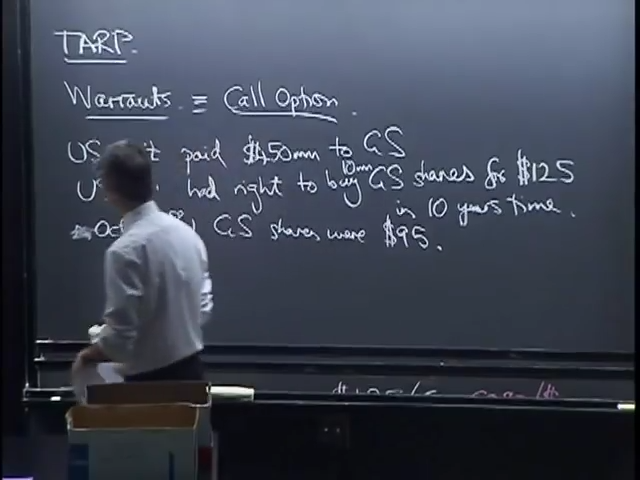 TARP.
Warrants ≡ Call Option.
US it paid $450mm to GS
U had right to buy 10mm GS shares for $125
in 10 years time.
Oct GS shares were $95.